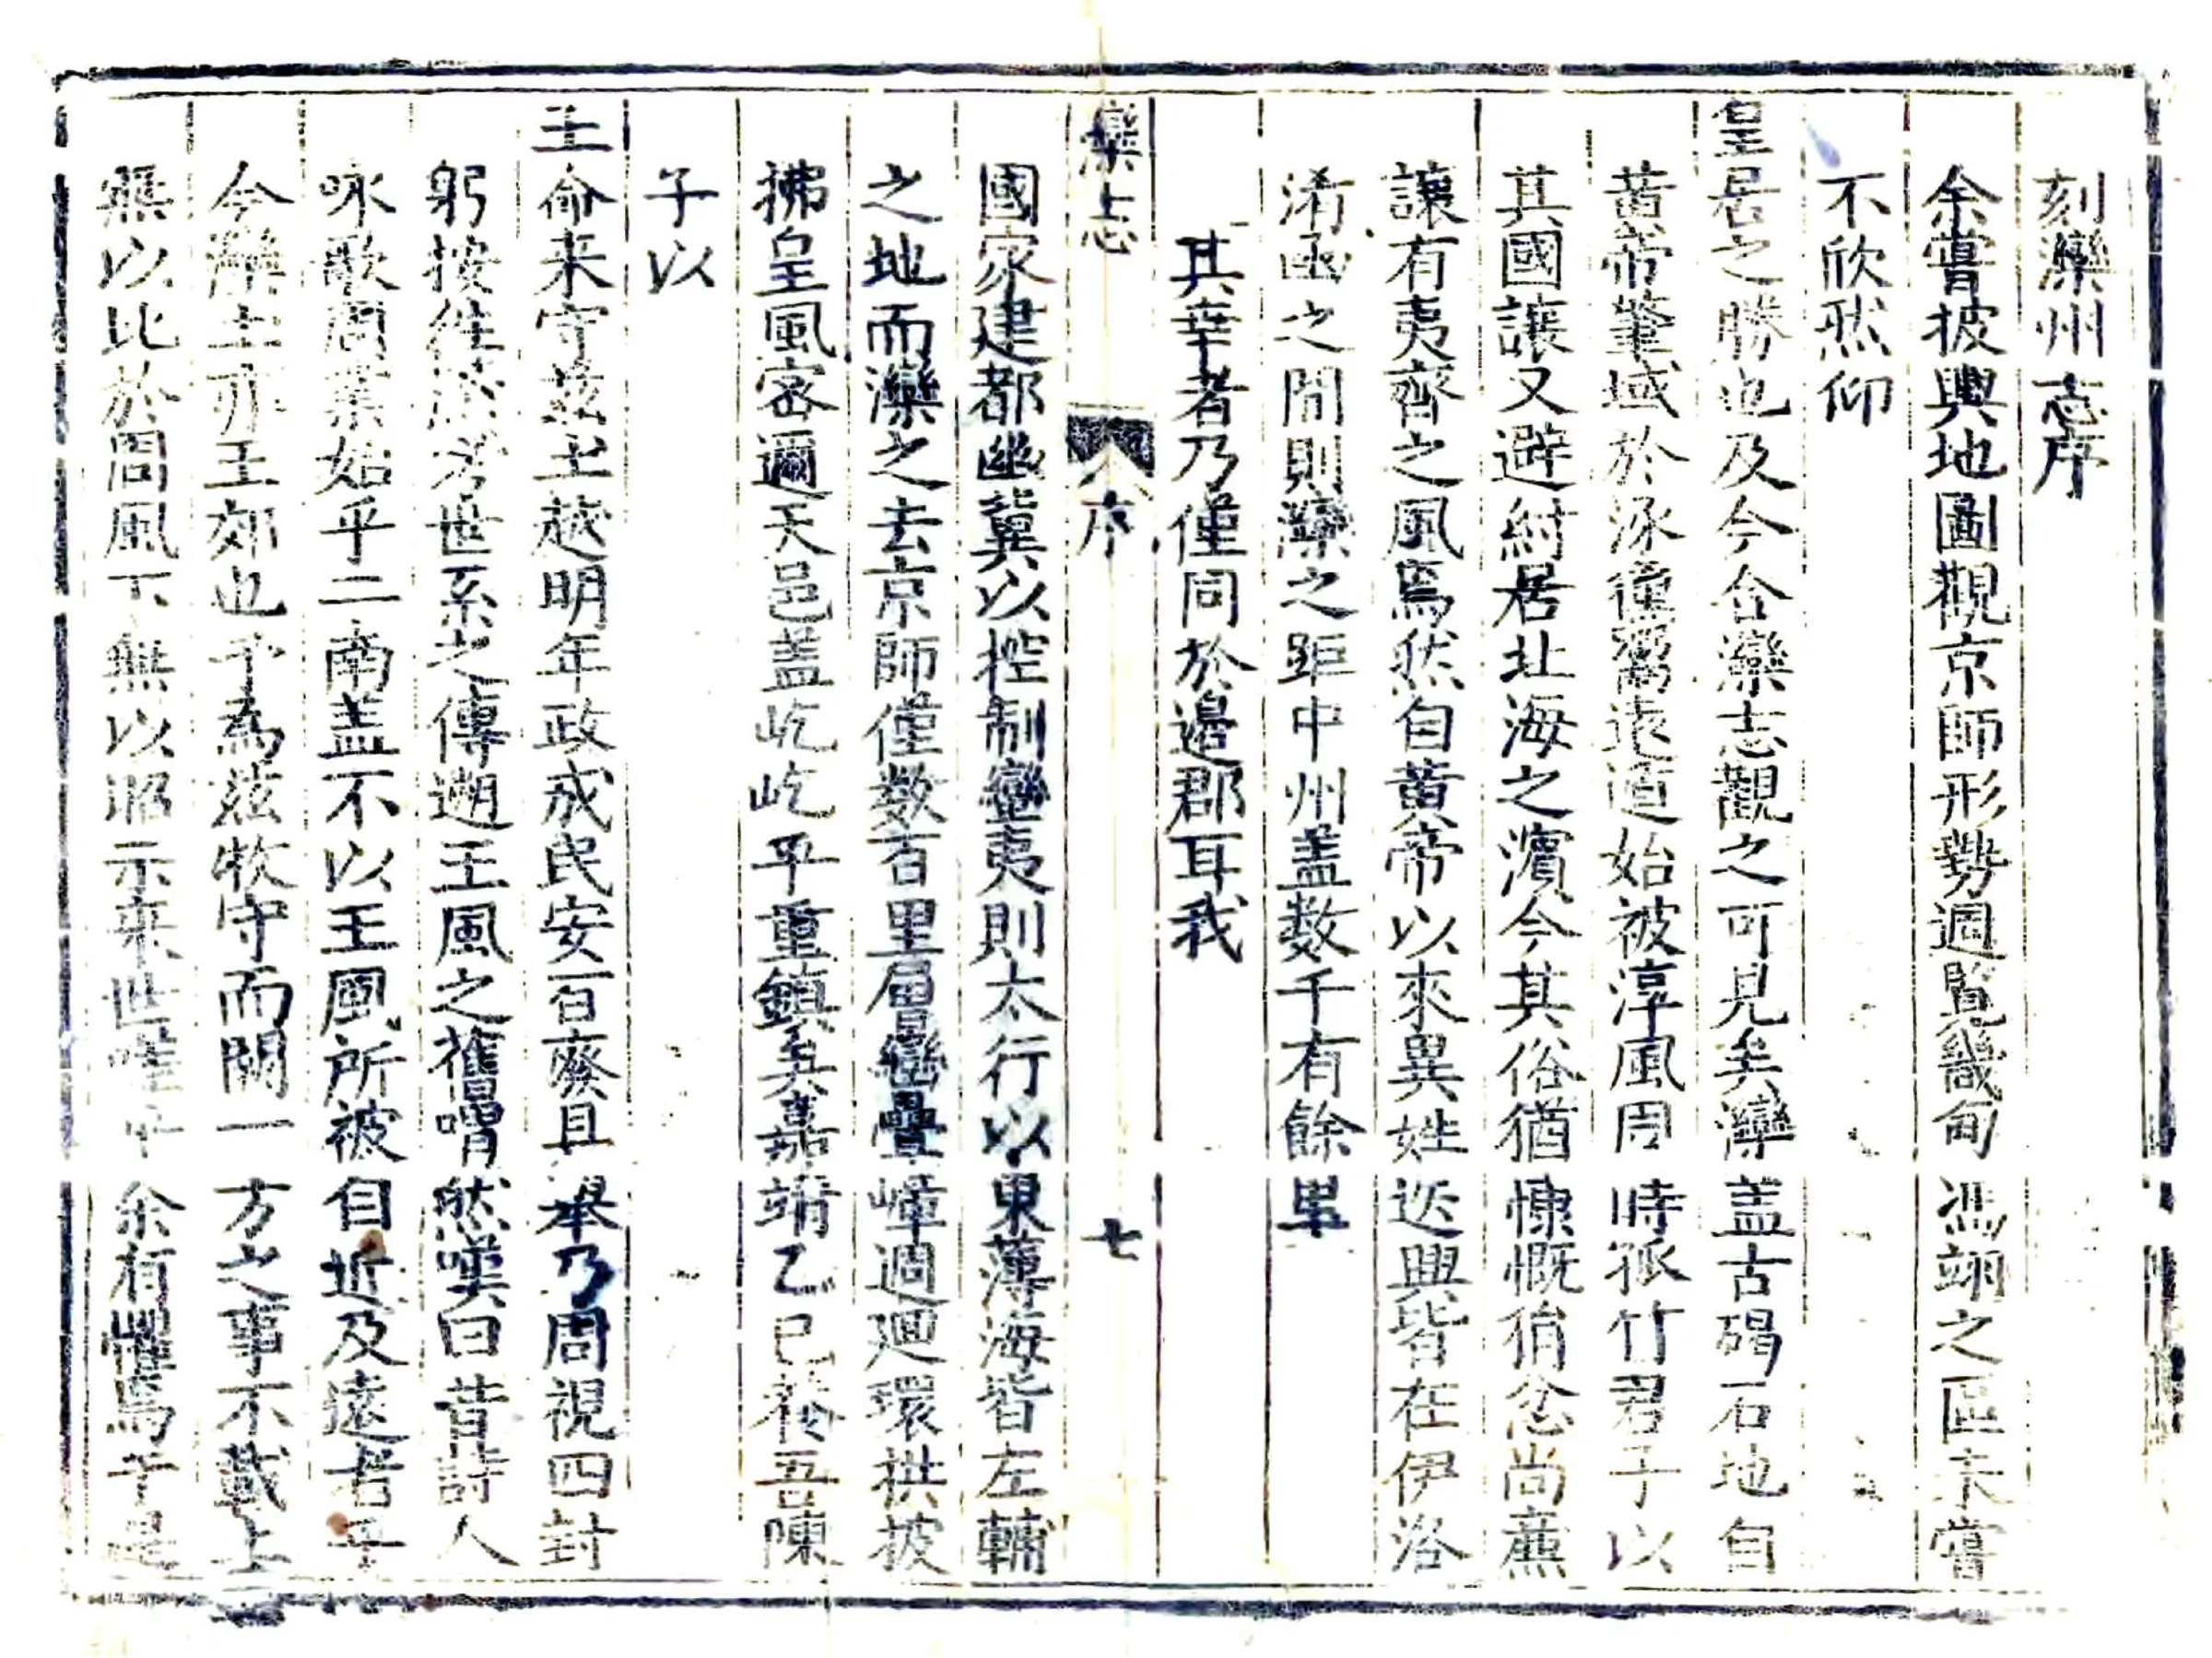 刻灤州志序
余嘗披輿地圖觀京師形勢週覧畿甸馮翊之區未嘗
不欣然仰
皇居之勝也及今合灤志觀之可見矣灤蓋古碣石地自
黃帝肇域於涿僮澤遠迫始被淳風周時孤竹君子以
其國讓又避紂居北海之濱今其俗猶慷慨狷忿尚廉
讓有夷齊之風焉然自黃帝以來異姓迭興皆在伊洛
淆函之間則灤之距中州盖数千有餘里
其幸者乃僅同於邉郡耳我
灤志
序
七
國家建都幽冀以控制蠻夷則太行以東薄海皆左輔
之地而灤之去京師僅数百里層巒疊嶂週廻環拱披
拂皇風密邇天邑盖屹屹乎重鎮矣嘉靖乙巳春五陳
子以
王命来守兹土越明年政成民安百廢具舉乃周視四封
躬按往蹟考世系之傳遡王風之舊喟然嘆曰昔詩人
咏歌周業始乎二南盖不以王風所被自近及遠者乎
今灤土亦王郊也予為兹牧守而關一方之事不載上
無以比於周風下無以昭示来世 余有懼焉于是